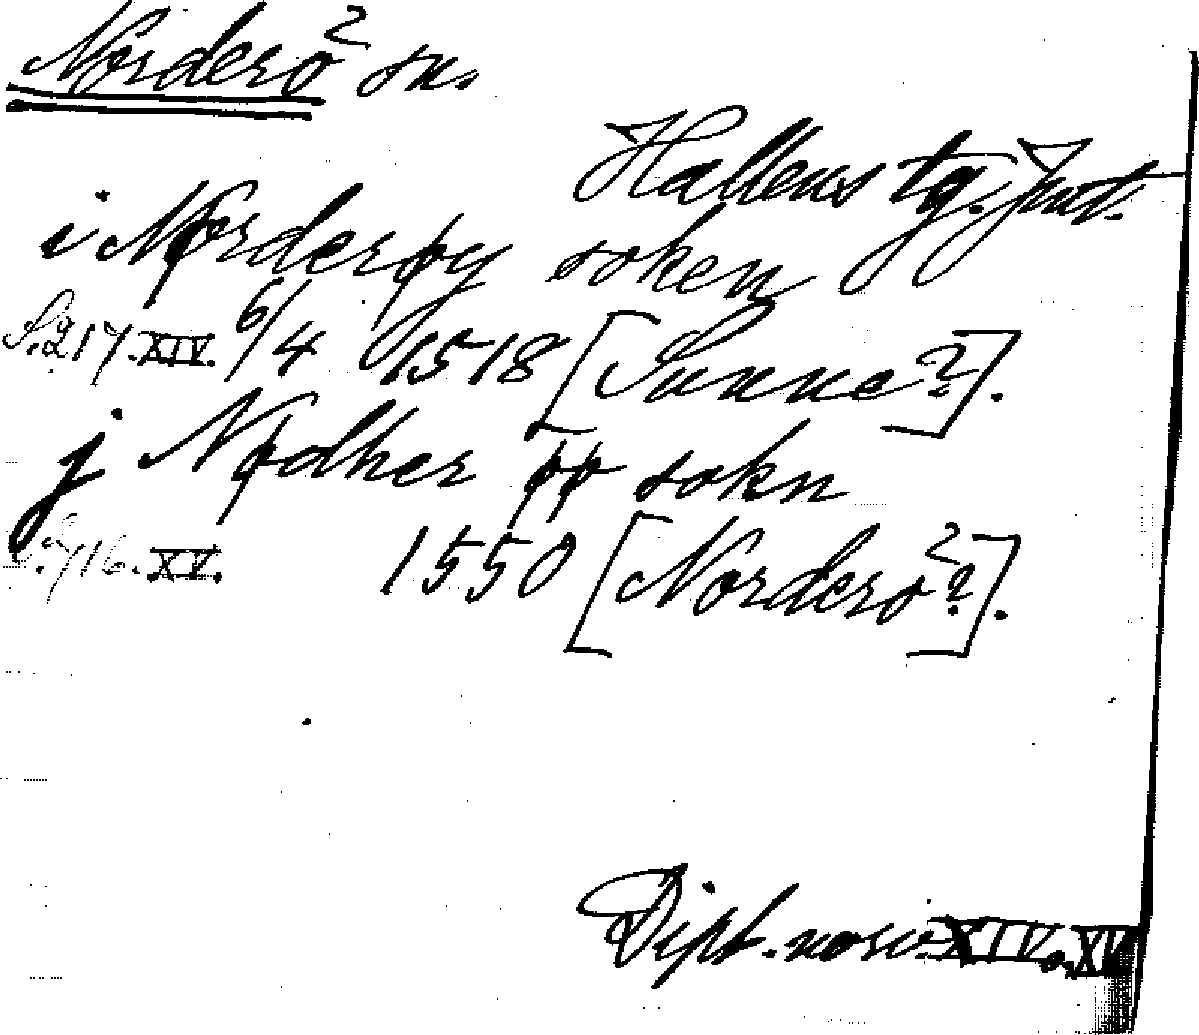 Norderö² sn.
Hallens tg. Jmt.
i Nørderøy soken
S. 217. XIV. 6/4 1518 [Sunne?].
j Nødher øø sokn
S. 716. XV. 1550 [Norderö²?].
Dipl. norv. XIV o. XV